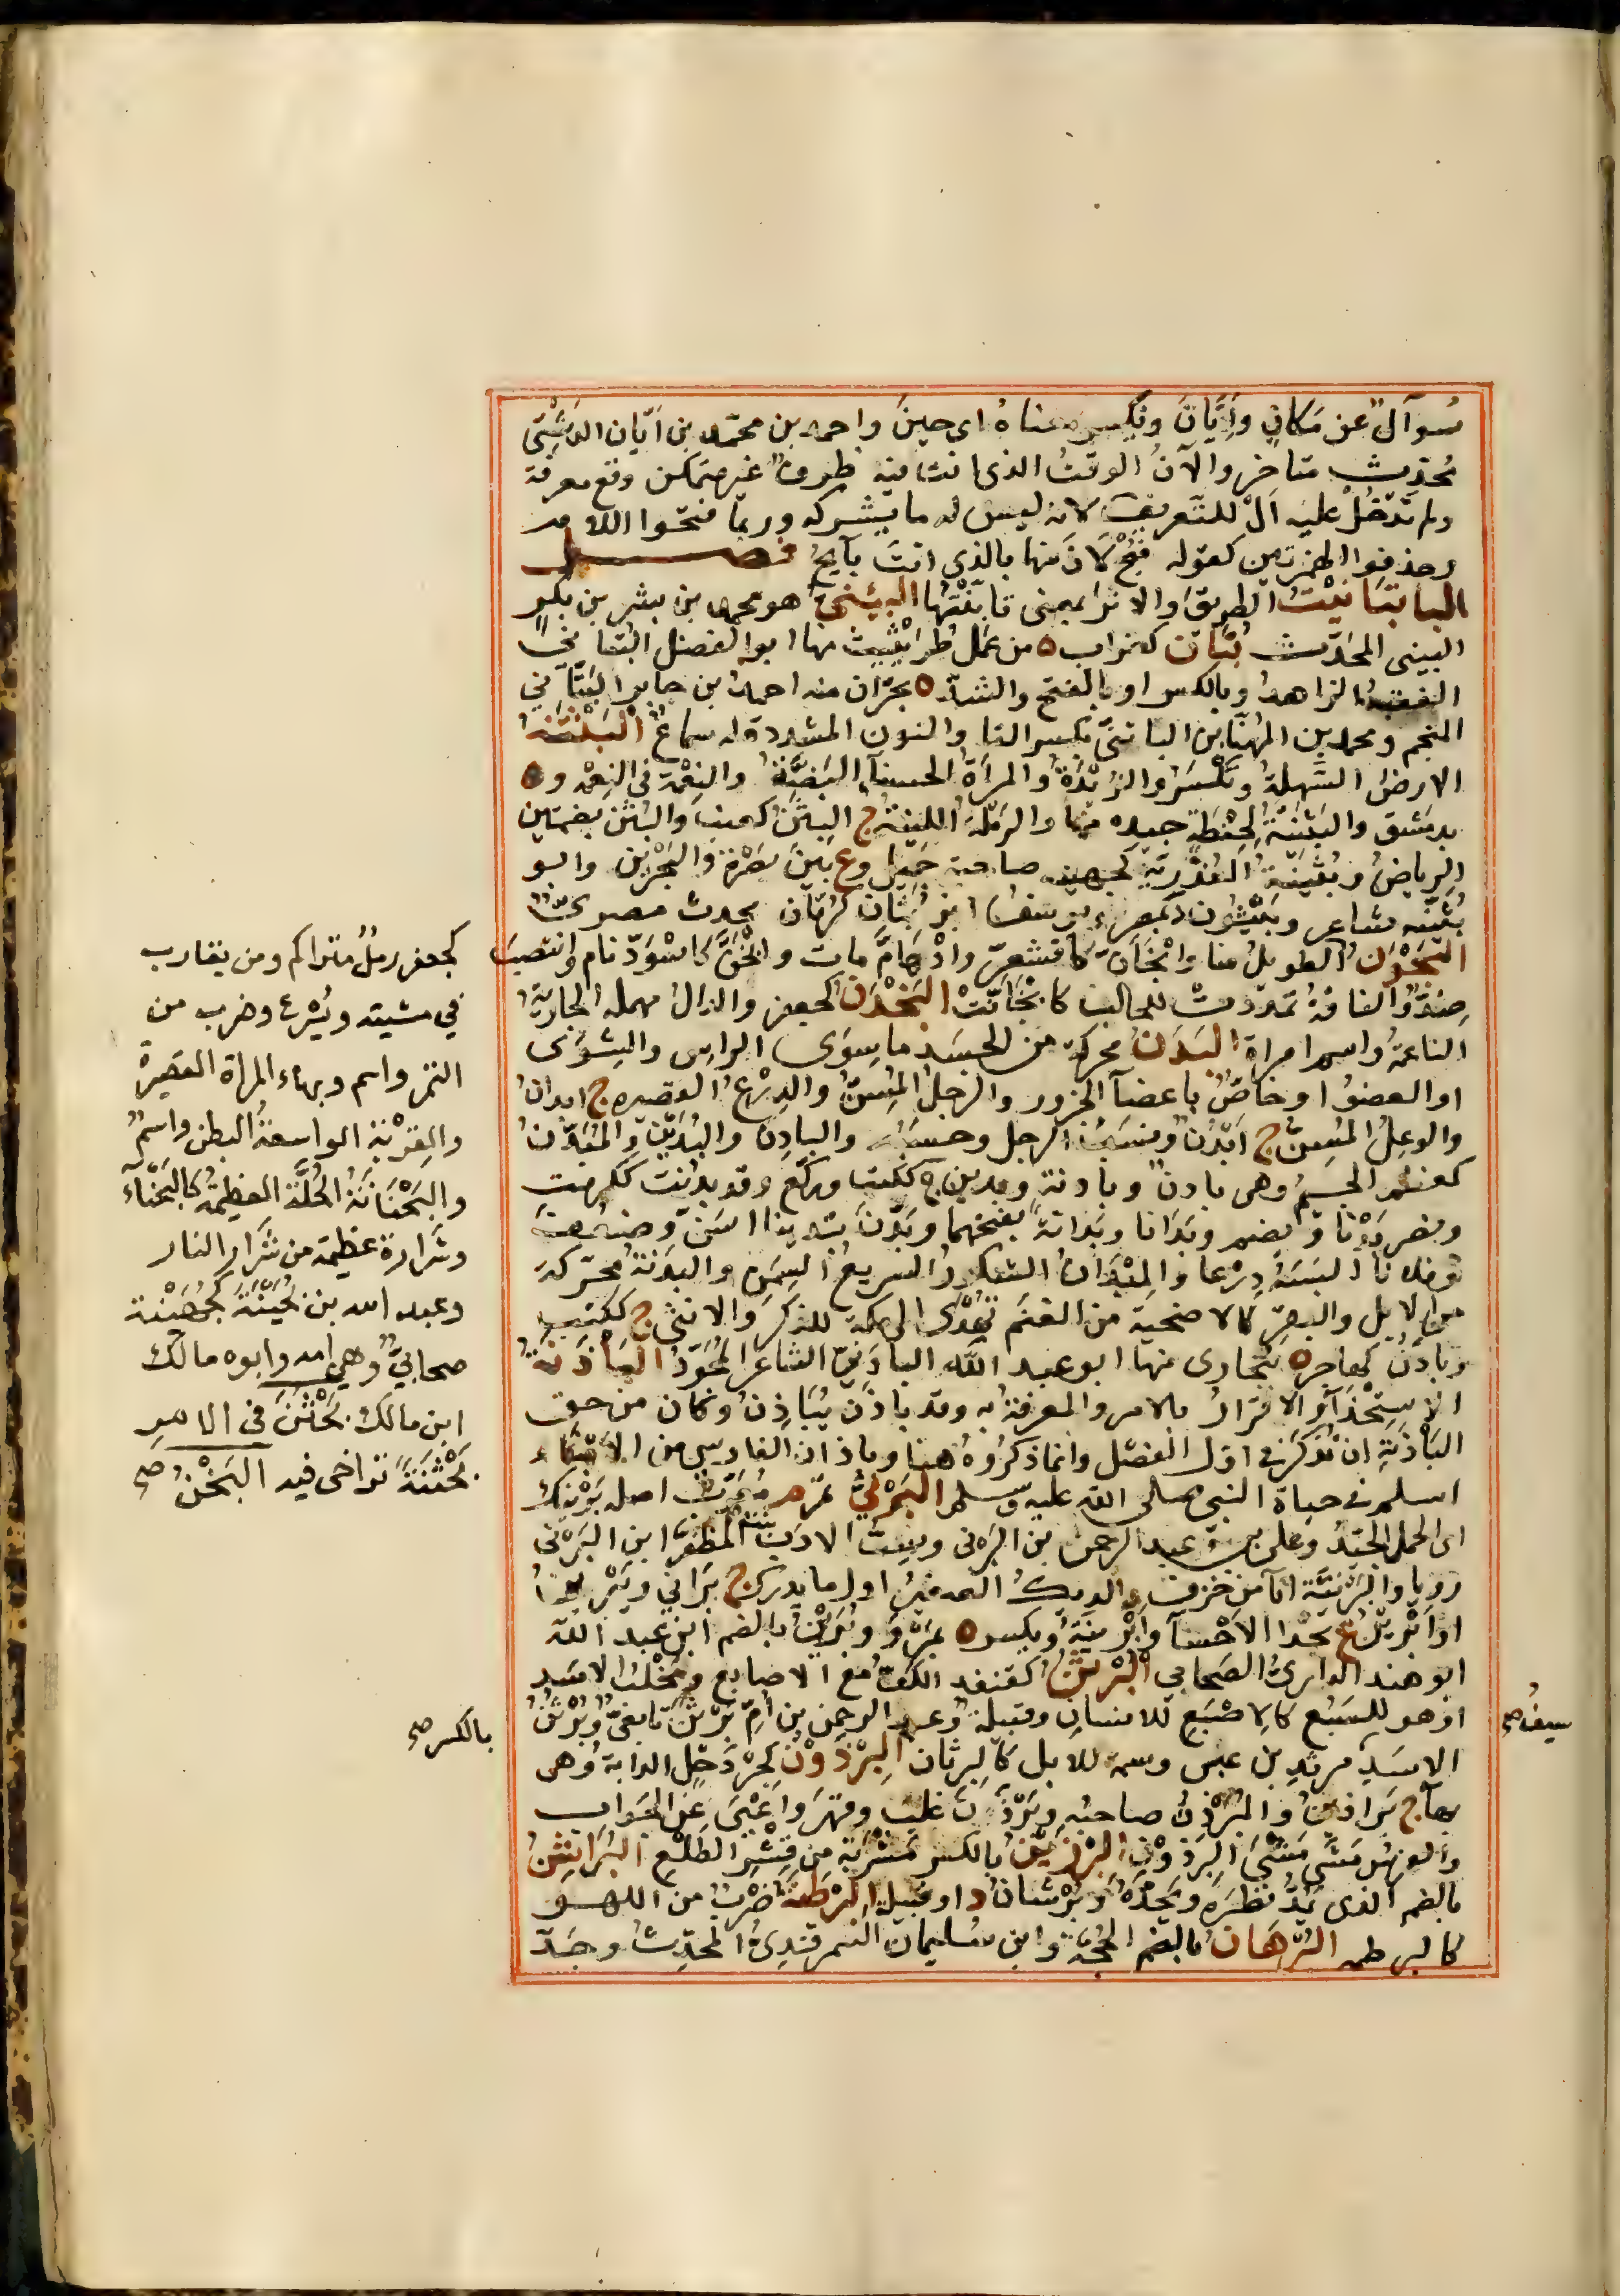 سُوآلٌ عن مَكانٍ وأيَّانَ ويُكسر معناهُ اى حينَ واحمد بن محمّد بن ايّان الدَشْتِى
مُحدِّث متاخر والآنُ الوقتُ الذى انت فيه ظرفٌ غير متمكن وقع معرفة
ولم تَدْخُلْ عليه اَلْ للتَعريف لانه ليس له ما يشركه وربّما فتحوا اللام
وحذفوا الهمزتين كقوله فبُحْ لَانَ منها بالذى انت بآيحُ فصل
البا بَثَاثَيْتُ الطريقَ والاثرا بمعنى تأبَنْتُها البتنى هو محمد بن بشر بن بكرٍ
البتنى المحدّث بُتَان كغراب ه من عَمَل طُرَيْثيث منها ابو الفضل البُتانىّ
الفقيه الزاهد وبالكسر او بالفتح والشدّ ه بحَرّان منه احمد بن جابر البَتّانى
المنجم ومحمد بن المهنّا بن الباتنىّ بكسر التا والنون المشددة له سماعٌ البَثْنَةُ
الارضُ السَّهلةُ وتُكْسَرُ والزُبْدَةُ والمرأةُ الحسنآ البَضّةُ والنِعْمَة فى النِعْمة و ه
بدمَشق والبَثَنيّةُ لحِنطةٍ جيده منها والرَمْلَة اللينةُ ج البِثَنُ كعنب والبُثُن بضمتين
الرياضُ وبُثَيْنَةُ العُذْرِيّة كجهينة صاحبة جَميل وع بينَ بَصْرَةَ والبَحْرَين وابو
بُثَيْنَه شاعر وبَيْثُون د بمصر ويوسفُ ابنُ بُثَان كرمّان محدث مصرىّ
البَحْوَنُ الطويلُ منا وابْخَأنَّ كاقشعرّ وادْهَامَّ مات وابْخَنَّ كاسْوَدّ نام وانتصبَ
ضِدٌّ والناقةُ تمدّدتْ للحالب كابْخَأنَّتْ البَخْدَنُ كجعفر والدالُ مهمله الجاريةُ
الناعمةُ واسم امراة البَدَنُ محركة من الجَسَد ما سِوَى الراس والشوَى
او العضوُ او خاصٌّ باعضآ الجزور والرجلُ المُسِنُّ والدِرْعُ القصيره ج ابدانُ
والوعِلُ المُسِنُّ ج اَبْدُنٌ ونسَبُ الرجل وحسَبُه والبادِن والبَدينُ والمُبَدَّنُ
كمعظّم الجسيمُ وهى بادنٌ وبادنة وبدين ج ككتب وركّع وقد بدُنَت ككرمت
ونصر بَدْنًا ويضم وبَدَانا وبَدَانةً بفتحهما وبَدَّن تبدينا اسَنّ وضعُف
وفلانا البسَهُ دِرْعا والمِبْدَانُ الشكورُ السريعُ السِمَن والبَدَنَةُ محرّكة
من الابل والبقر كالاضحية من الغنَم تُهْدَى الى مكة للذكَر والانثى ج ككتب
وبادَنُ كهاجر ه ببُخارى منها ابو عبد الله البادَنىّ الشاعر المُجَوّد البَأْذَنةُ
الاستِخْذَآ والاقرارُ بالامر والمعرفة به وقد باذَن يُبَاذِنُ وكان من حق
البَأْذَنةِ ان تُذكرَ فى اول الفَصْل وانّما ذكرُوهُ هنا وباذان الفارسى من الابنآء
اسلم فى حياة النبى صلى الله عليه وسلم البَرْنىُّ تمر م مُعَرّب اصله بَرْنيك
اى الحمل الجيّد وعلى بن عبد الرحمن بن البَرنى وبيتُ الادَب المُظفّر ابن البَرْنى
رويا والبَرْنيَّة انآ من خزف والديكُ الصغيرُ اول ما يدرك ج بَرانى ويَبْرين
او اَبْرينُ ع بحْذا الاَحْسآ واَبْرينَةُ ويكسر ه بمَرْوَ وبُرَيْنُ بالضم ابن عبد الله
ابو هند الدارىُّ الصَحابى البُرْثُنُ كقنفذ الكفُّ مع الاصابع ومِخْلَبُ الاسَد
او هو للسَبُع كالاصْبَع للانسان وقبيلةٌ وعبد الرحمن بن اُمّ بُرْثُنٍ تابعىٌّ وبُرْثُنُ
الاسَدِ مرثدِ بن عَبسٍ وسمة للابل كالبِرثان البِرْذَوْن كجِرْدَحْلٍ الدابة وهى
بهآ ج بَراذينُ والمُبَرْذِنُ صاحبُه وبَرْذَنَ غلب وقهَر واَعْيَى عن الجَواب
والفرسُ مَشَى مَشْىَ البِرْذَون البِرْزِينُ بالكسر مَشْرَبة من قِشْرِ الطَلْع البُرَاشِنُ
بالضم الذى يَمُدُّ نَظَرَهُ ويَحُدُّهُ وبُرْشَانُ د او قبيلة البَرْطَنةُ ضَرْبٌ من اللهو
كالبرطمة البُرْهَانُ بالضم الحُجّة وابن سُليمان السَمرقندىُّ المحدّث وجدُّ
كجعفر رملٌ متراكم ومن يتقارب
فى مشيته ويُسْرع وضرب من
التمر واسم وبهاء المراة القصيرة
والقِرْبة الواسعةُ البطن واسمٌ
والبَحْنَانَةُ الجُلَّةُ العظيمةُ كالبَحْنَآء
وشرارة عظيمة من شَرَارِ النار
وعبد الله بن بُحَيْنَةَ كجُهَيْنة
صحابىٌّ وهى امه وابوه مالك
ابن مالك بَحْثَنَ فى الامر
بَحْثَنَةً تراخى فيه البَخْنُ صح
سيفُ صح
بالكسر صح